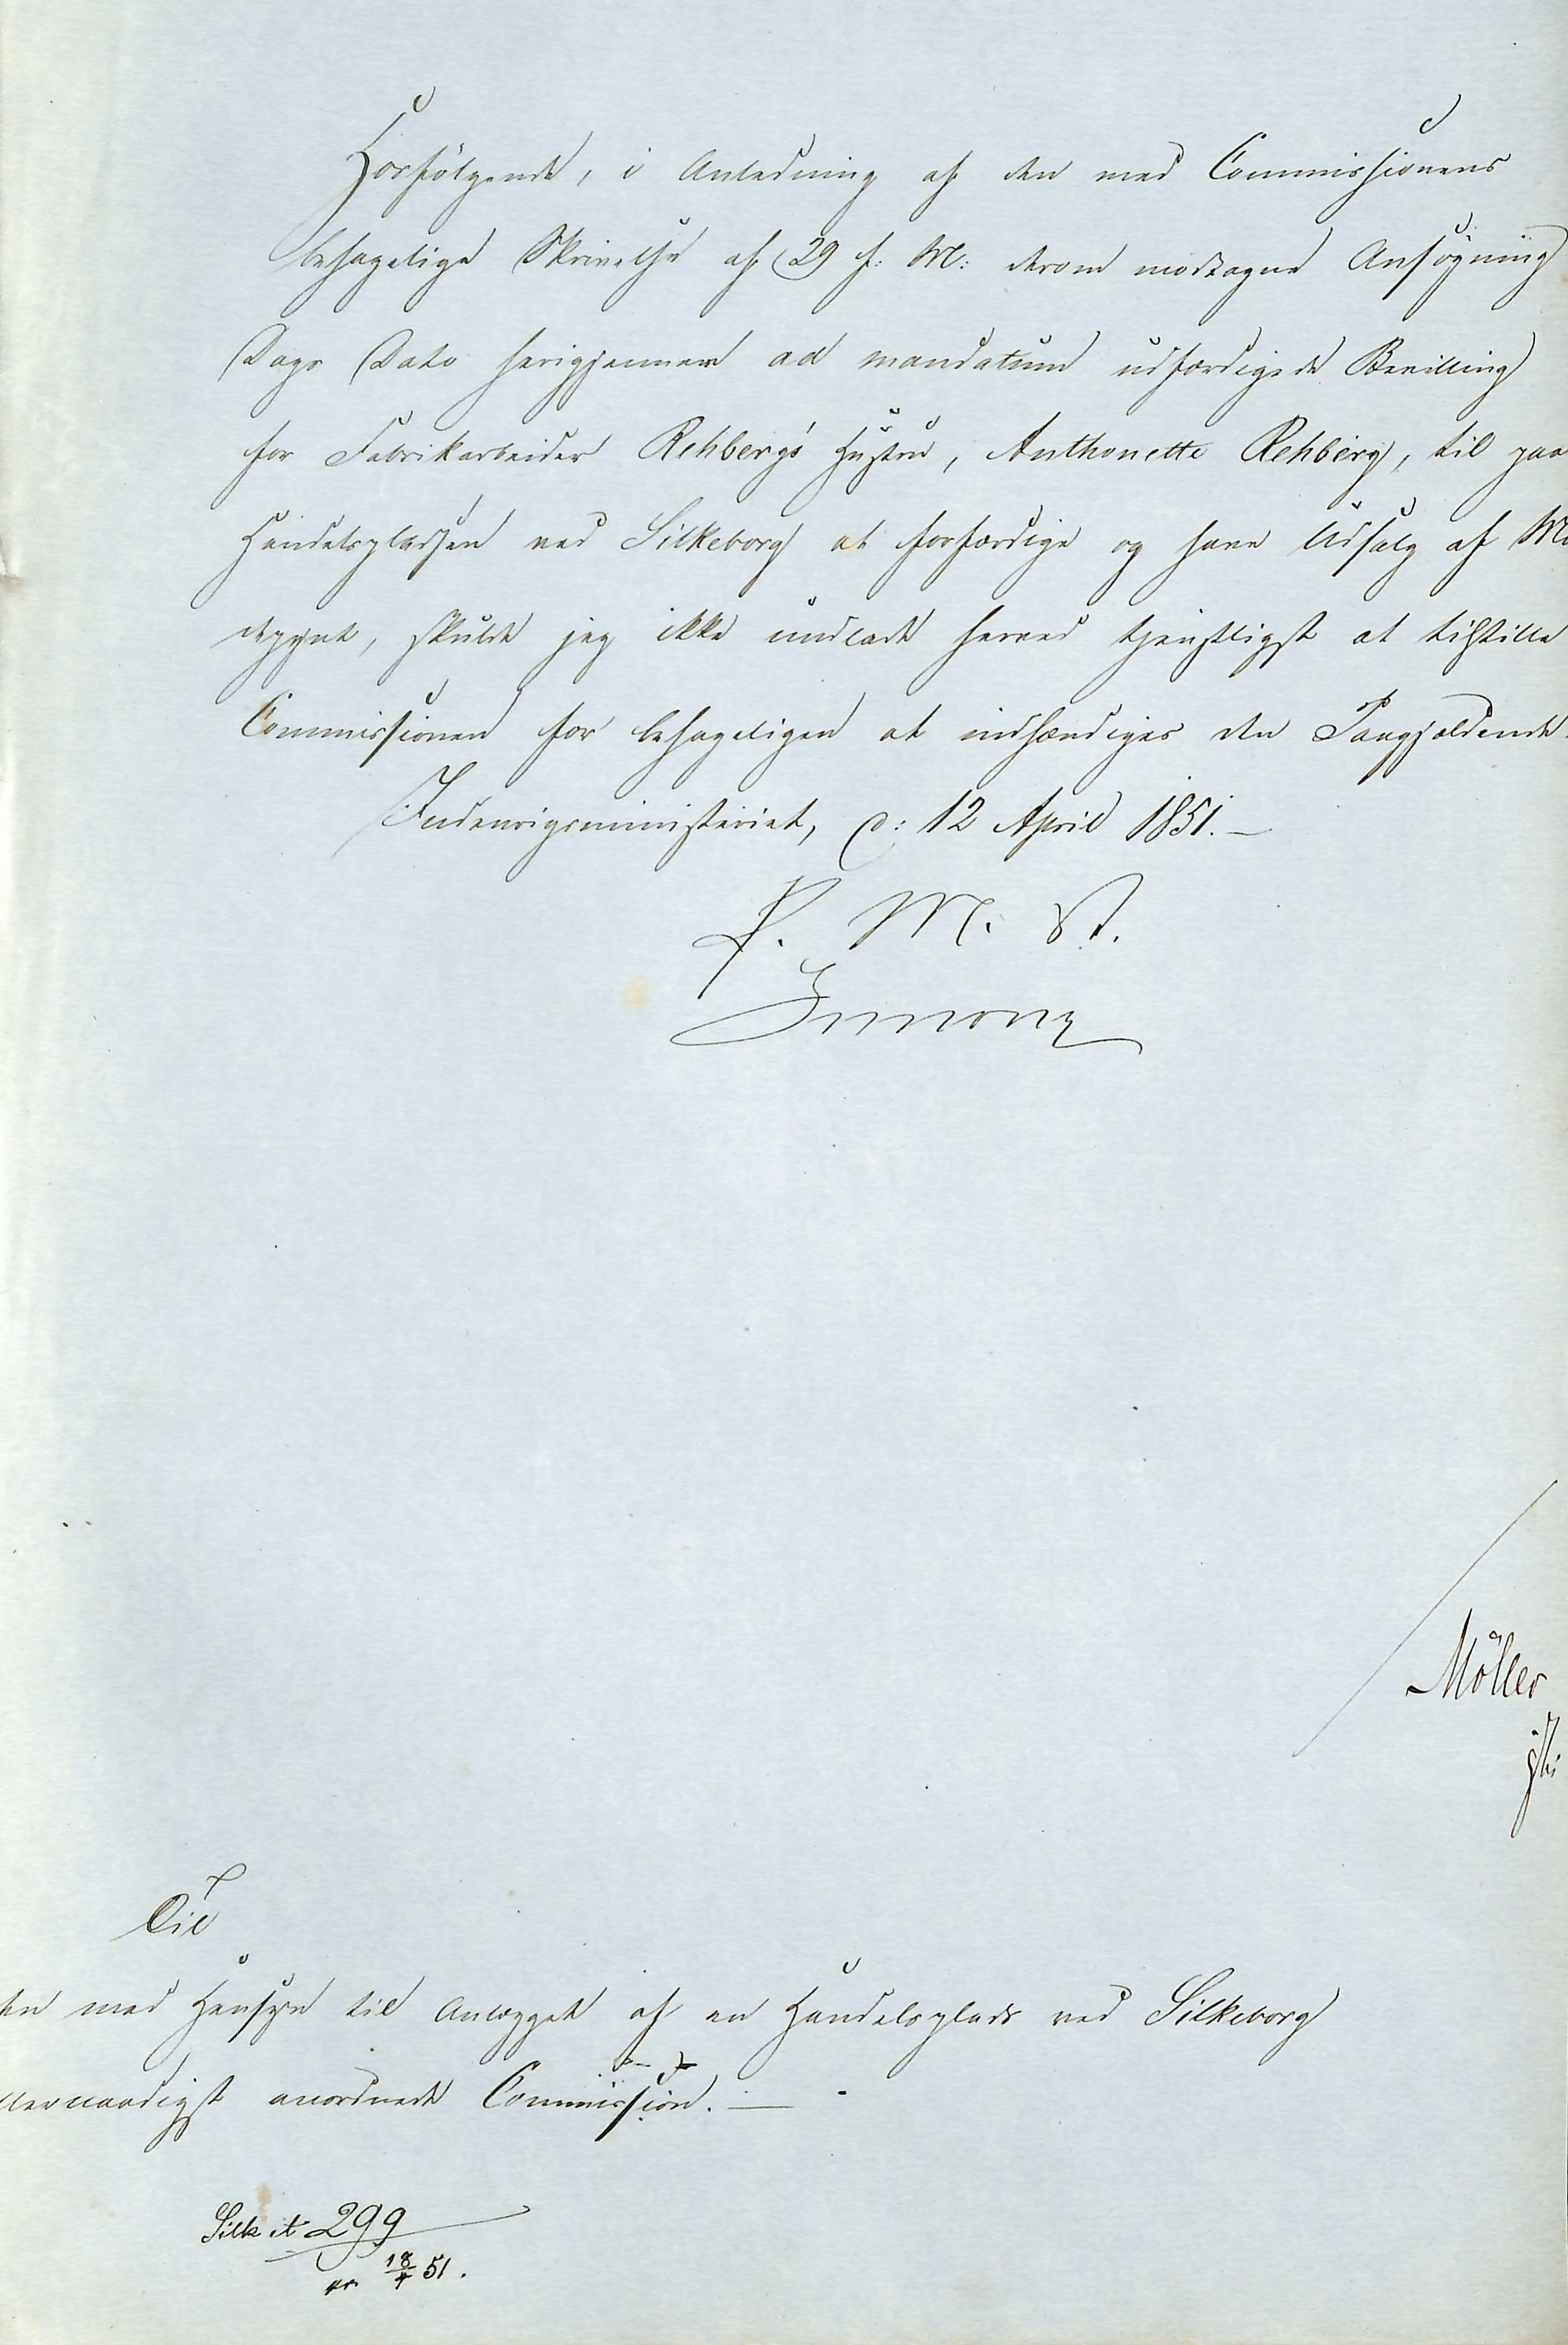 Hosfølgende, i Anledning af den med Commissionens
behagelige Skrivelse af 29 f: M: derom modtagne Ansøgning
Dags Dato herigjennem ad mandatum udfærdigede Bevilling
for Fabrikarbeider Rehberg's Hustru, Anthonette Rehberg, til paa
Handelspladsen ved Silkeborg at forfærdige og have Udsalg af Mo
depynt, skulde jeg ikke undlade herved tjenstligst at tilstille
Commissionen for behageligen at indhændiges den Paagjældende.
Indenrigsministeriet, d: 12 April 1851.—
P. M. V.
Simony
Möller
Til
den med Hensyn til Anlægget af en Handelsplads ved Silkeborg
allernaadigst anordnede Commission.—
Silk it 299
18/4 51.